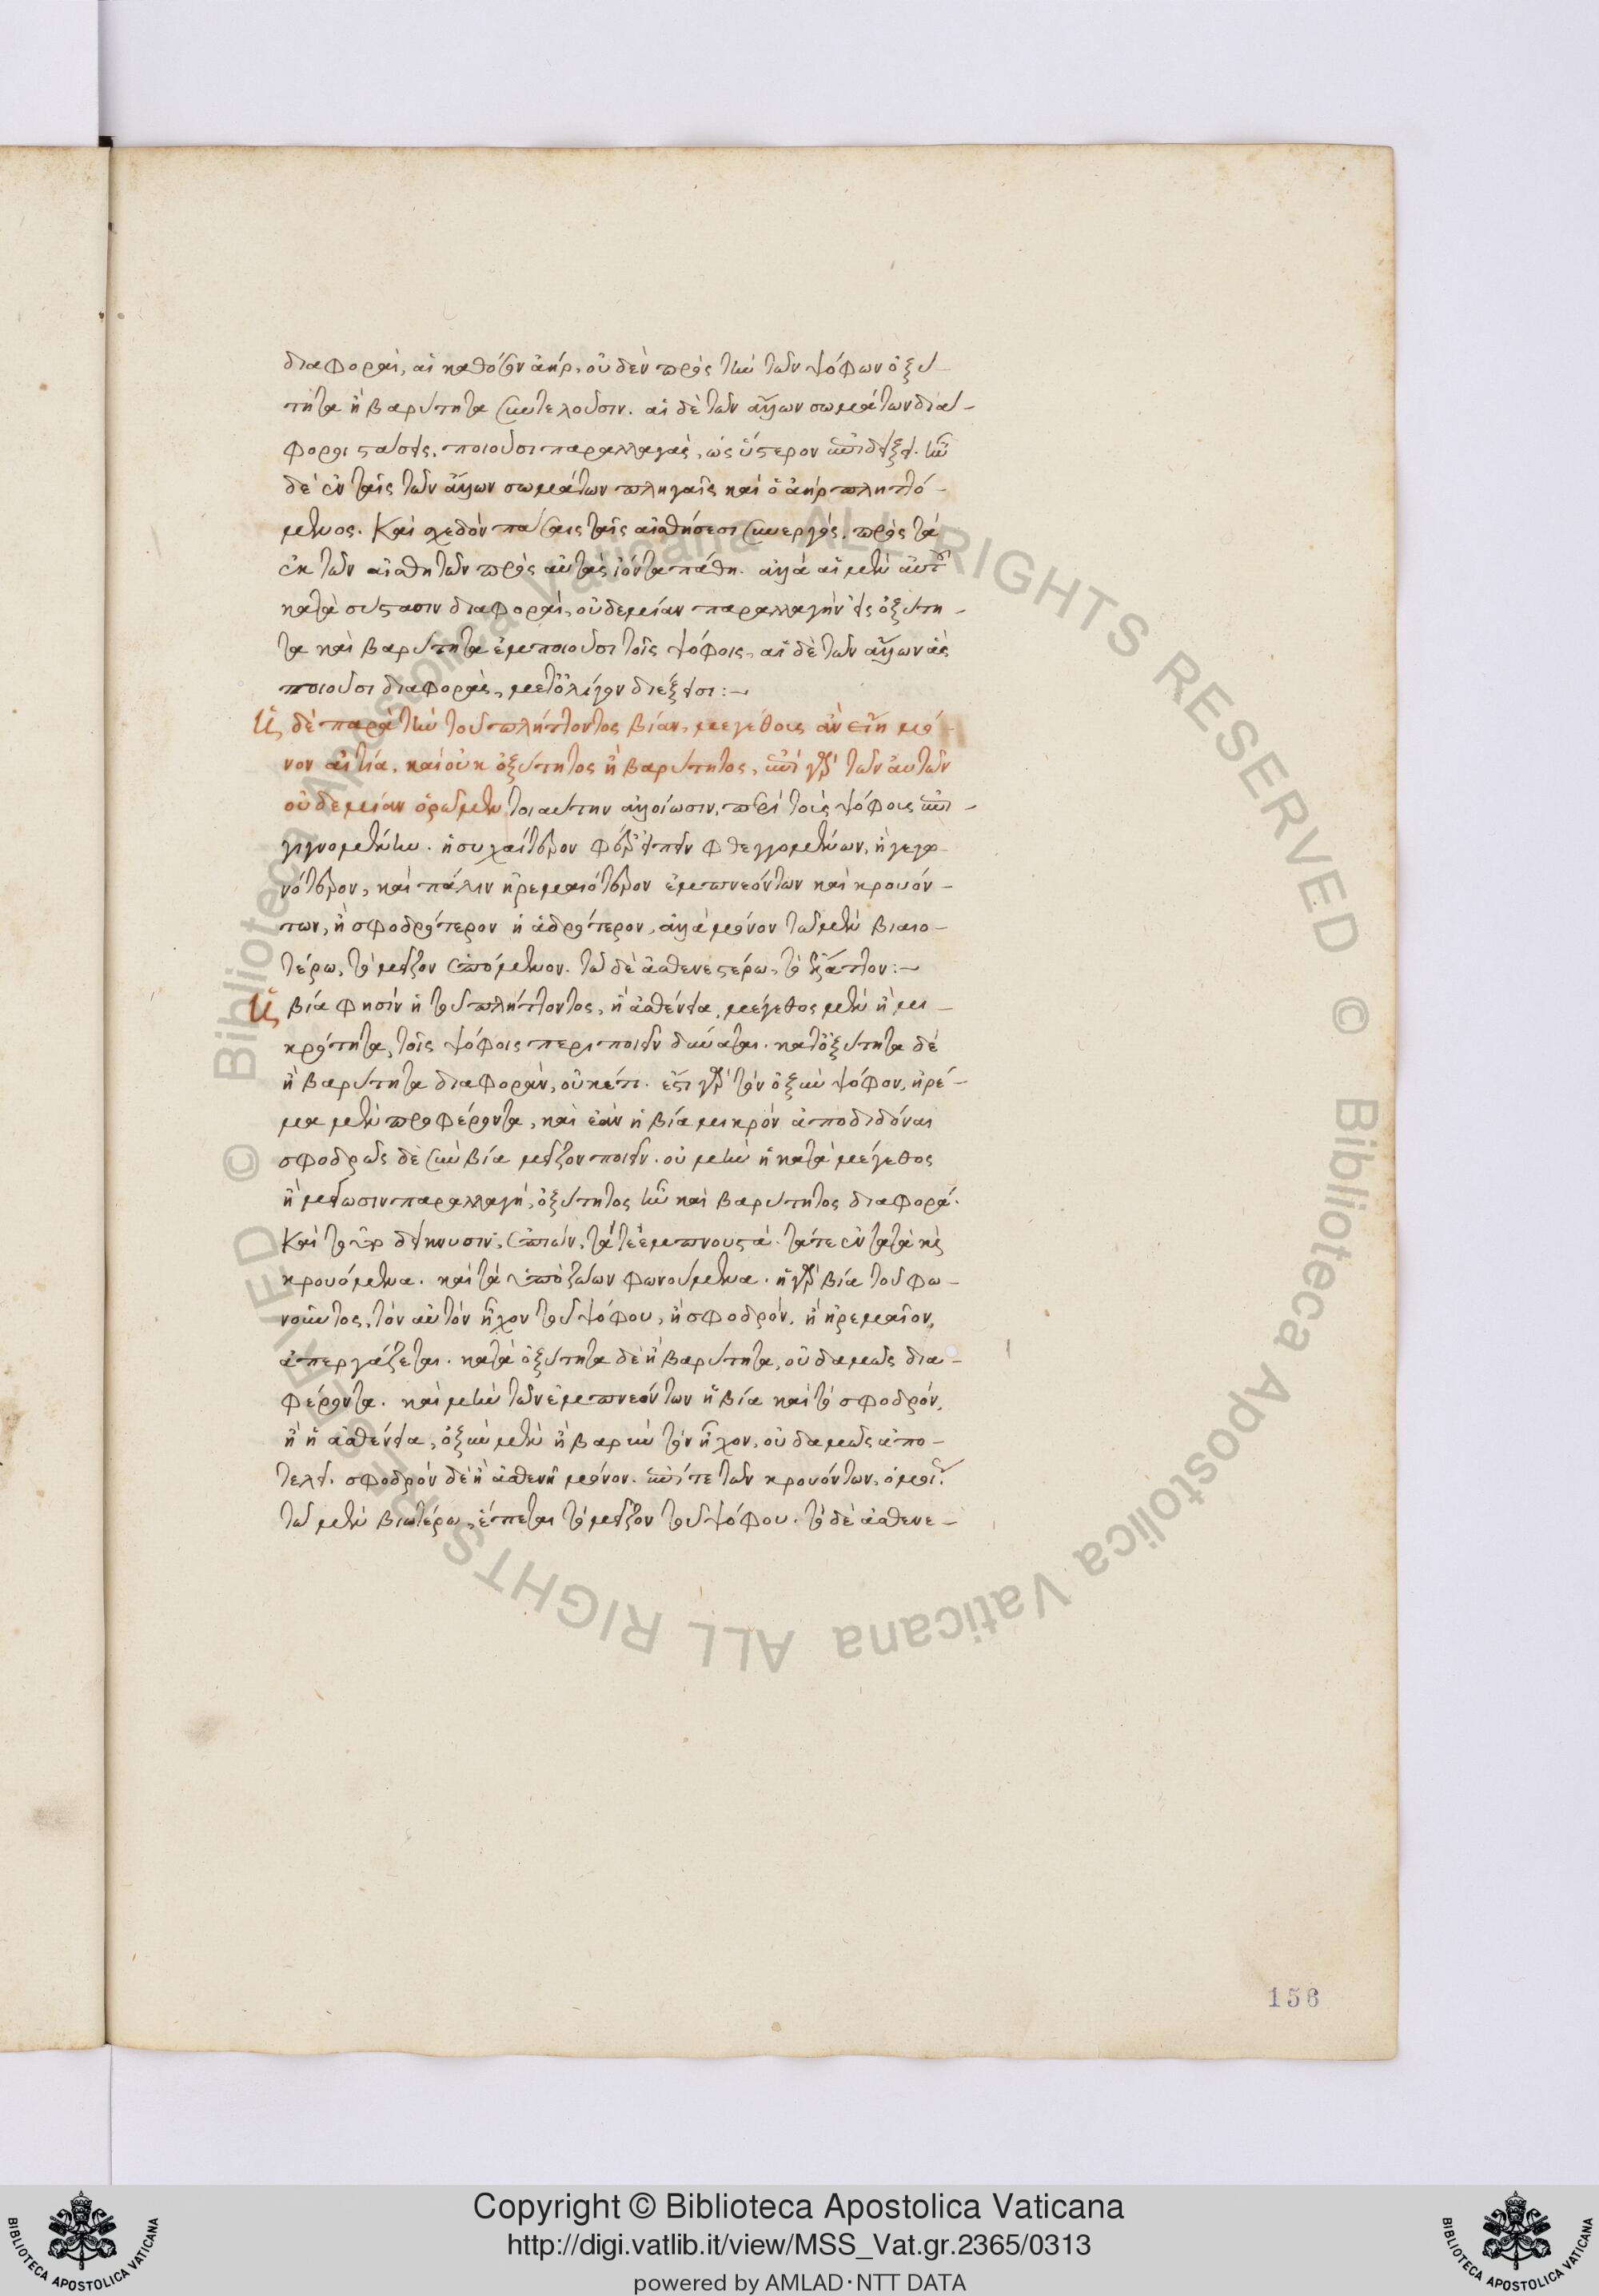 διαφοραὶ, αἱ καθόσον ἀὴρ, οὐδὲν πρὸς τὴν τῶν ψόφων ὀξύ-
τητα ἢ βαρύτητα συντελοῦσιν. αἱ δὲ τῶν ἄλλων σωμάτων δια-
φοραι πάσας ποιοῦσι παραλλαγὰς, ὡς ὕστερον ἐπιδείξει. ἦν
δὲ ἐν ταῖς τῶν ἄλλων σωμάτων πληγαῖς καὶ ὁ ἀὴρ πληττό-
μενος. Καὶ σχεδὸν πάσαις ταῖς αἰσθήσεσι συνεργὸς, πρὸς τὰ
ἐκ τῶν αἰσθητῶν πρὸς αὐτὰς ἰόντα πάθη. ἀλλὰ αἱ μὲν αὐτοῦ
κατὰ σύστασιν διαφοραὶ, οὐδεμίαν παραλλαγὴν εἰς ὀξύτη-
τα καὶ βαρύτητα ἐμποιοῦσι τοῖς ψόφοις, αἱ δὲ τῶν ἄλλων ἃς
ποιοῦσι διαφορὰς, μετ' ὀλίγον διέξεισι:-
Ἡ δὲ παρὰ τὴν τοῦ πλήττοντος βίαν, μεγέθους ἂν εἴη μό-
νον αἰτία, καὶ οὐκ ὀξύτητος ἢ βαρύτητος, ἐπὶ γὰρ τῶν αὐτῶν
οὐδεμίαν ὁρῶμεν τοιαύτην ἀλλοίωσιν, περὶ τοὺς ψόφους ἐπι-
γιγνομένην. ἡσυχαίτερον φέρ' εἰπεῖν φθεγγομένων, ἢ γεγω-
νότερον, καὶ πάλιν ἠρεμαιότερον ἐμπνεόντων καὶ κρουόν-
των, ἢ σφοδρότερον ἢ ἁδρότερον, ἀλλὰ μόνον τῷ μὲν βιαιο-
τέρῳ, τὸ μεῖζον ἑπόμενον. τῷ δὲ ἀσθενεστέρῳ, τὸ ἔλαττον:-
Ἡ βία φησὶν ἡ τοῦ πλήττοντος, ἢ ἀσθένεια, μέγεθος μὲν ἢ μι-
κρότητα, τοῖς ψόφοις περιποιεῖν δύναται. κατ' ὀξύτητα δὲ
ἢ βαρύτητα διαφορὰν, οὐκέτι. ἔστι γὰρ τὸν ὀξὺν ψόφον, ἠρέ-
μα μὲν προφέροντα, καὶ ἐὰν ἡ βία μικρὸν ἀποδιδόναι
σφοδρῶς δὲ σὺν βία μεῖζον ποιεῖν. οὐ μὴν ἡ κατὰ μέγεθος
ἢ μείωσιν παραλλαγὴ, ὀξύτητος ἦν καὶ βαρύτητος διαφορά.
Καὶ τοῦτο δείκνυσιν, ἐπιὼν, τά τε ἐμπνευστά. τά τε ἐντατὰ καὶ
κρουόμενα. καὶ τὰ ὑπὸ ζώων φωνούμενα. ἡ γὰρ βία τοῦ φω-
νοῦντος, τὸν αὐτὸν ἦχον τοῦ ψόφου, ἢ σφοδρὸν, ἢ ἠρεμαῖον,
ἀπεργάζεται. κατὰ ὀξύτητα δὲ ἢ βαρύτητα, οὐδαμῶς δια-
φέροντα. καὶ μὴν τῶν ἐμπνεόντων ἡ βία καὶ τὸ σφοδρὸν,
ἢ ἡ ἀσθένεια, ὀξὺν μὲν ἢ βαρὺν τὸν ἦχον, οὐδαμῶς ἀπο-
τελεῖ. σφοδρὸν δὲ ἢ ἀσθενῆ μόνον. ἐπί τε τῶν κρουόντων, ὁμοίως.
τῷ μὲν βιωτέρω, ἕπεται τὸ μεῖζον τοῦ ψόφου. τὸ δὲ ἀσθενε-
156
Copyright © Biblioteca Apostolica Vaticana
http://digi.vatlib.it/view/MSS_Vat.gr.2365/0313
powered by AMLAD·NTT DATA
BIBLIOTECA APOSTOLICA VATICANA
BIBLIOTECA APOSTOLICA VATICANA
© Biblioteca Apostolica Vaticana ALL RIGHTS RESERVED
© Biblioteca Apostolica Vaticana ALL RIGHTS RESERVED